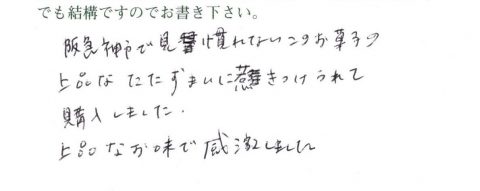 でも結構ですのでお書き下さい。
阪急神戸で見慣れないこのお菓子の
上品なたたずまいに惹きつけられて
購入しました.
上品なお味で感激しました